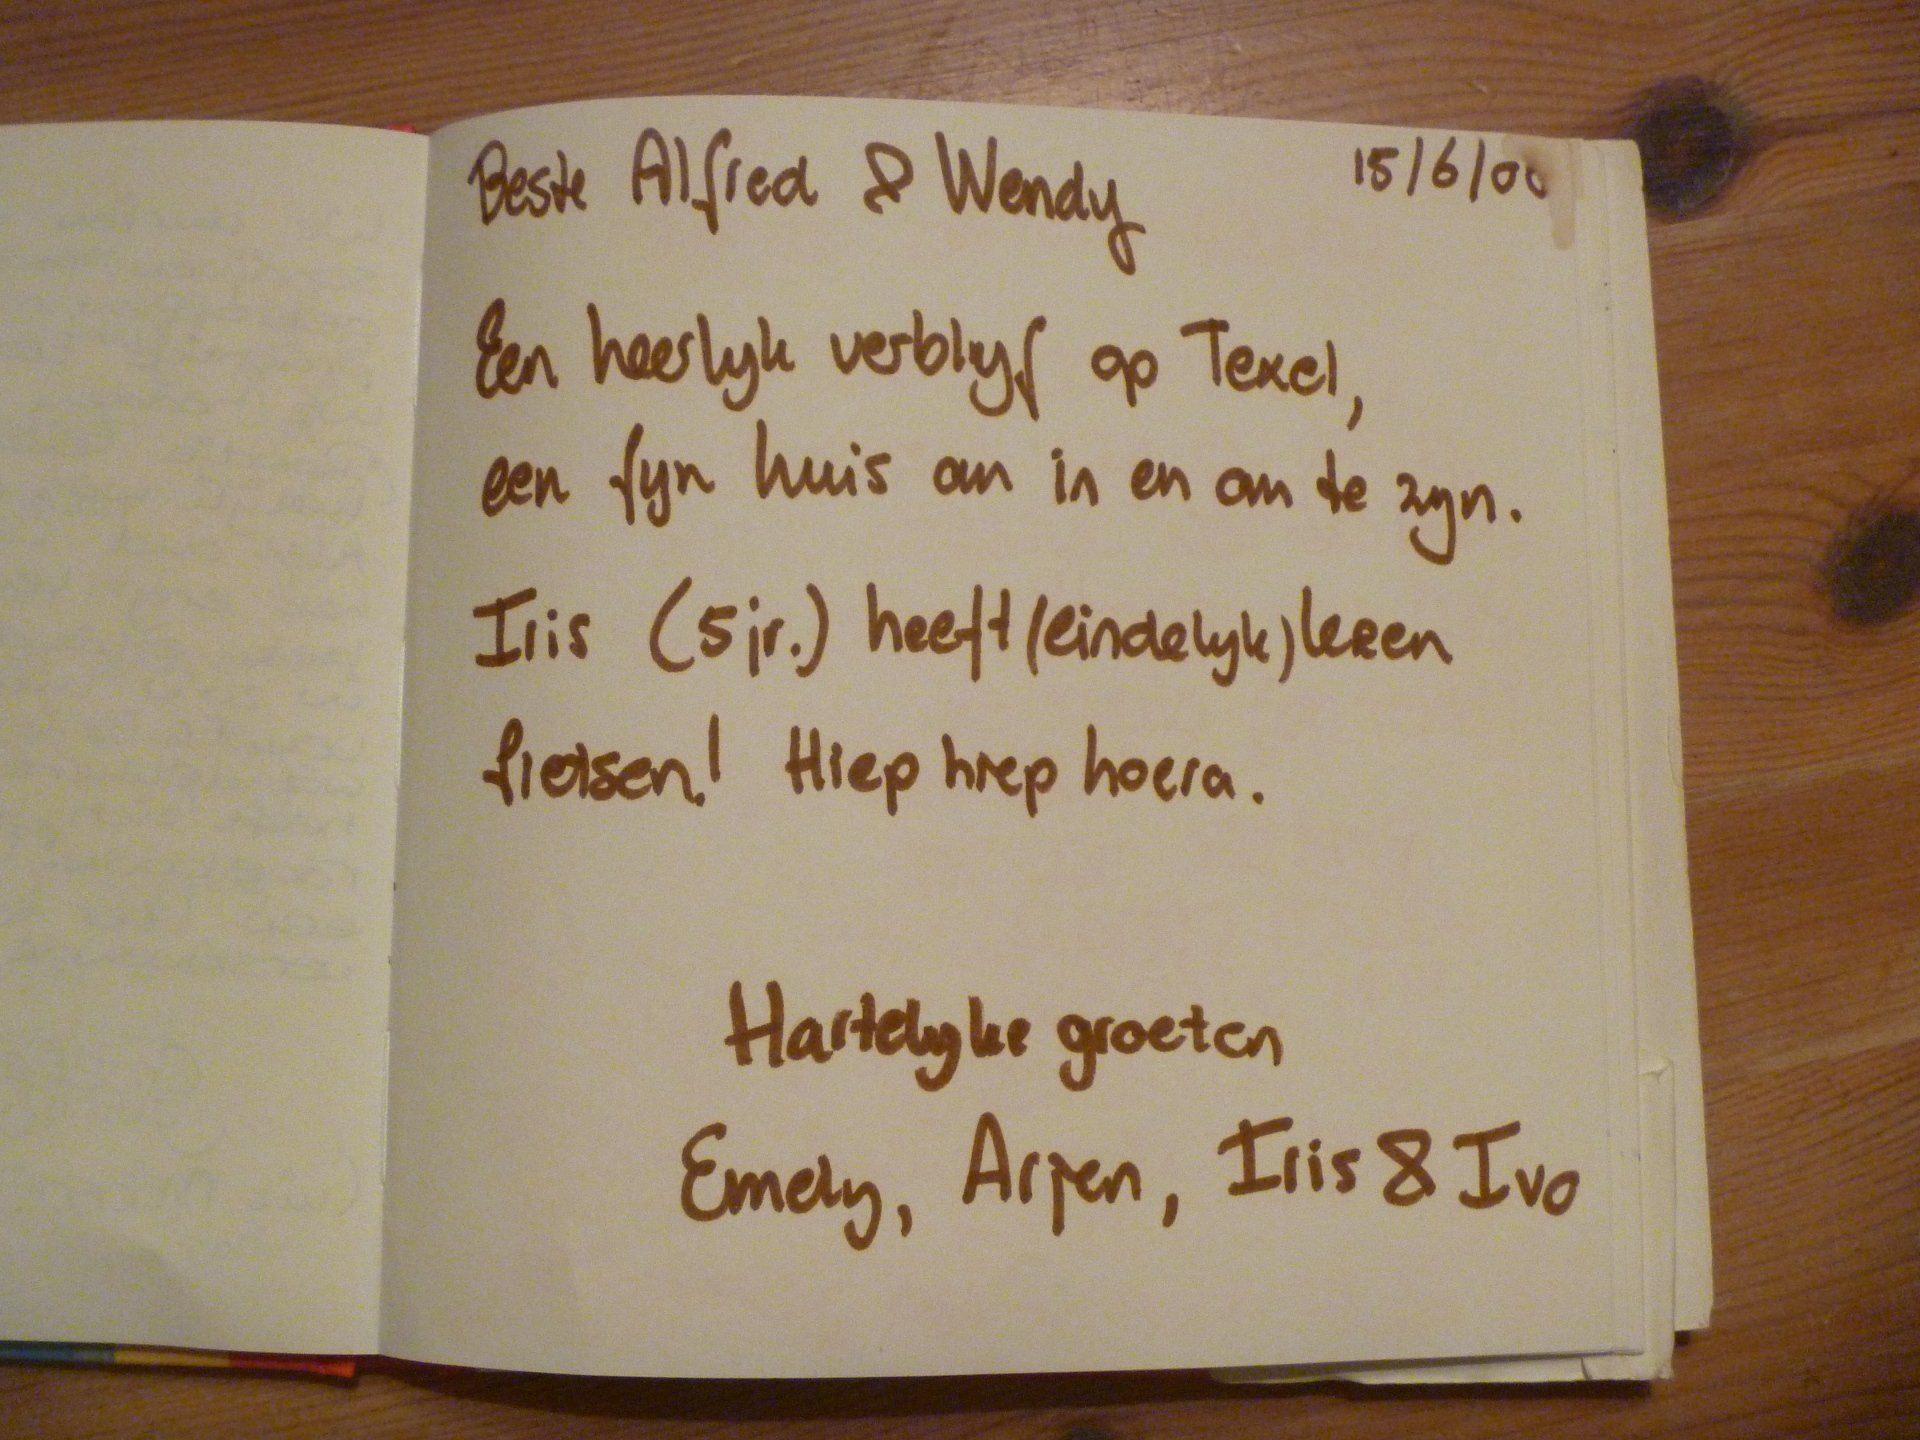 Beste Alfred & Wendy 15/6/00
Een heerlyk verblyf op Texel,
een fyn huis om in en om te zyn.
Iris (5 jr.) heeft (eindelyk) leren
fietsen! Hiep hiep hoera.
Hartelyke groeten
Emely, Arjen, Iris & Ivo